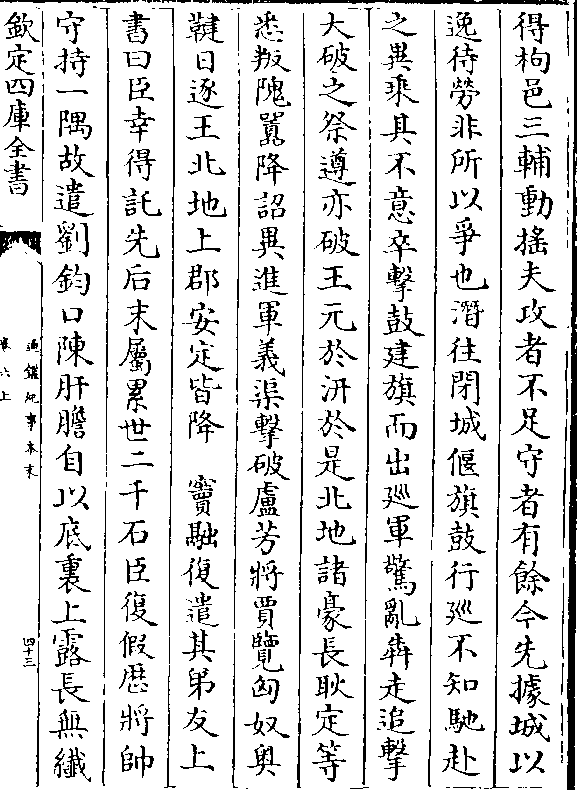 得栒邑三輔動揺夫攻者不足守者有餘今先據城以
逸待勞非所以爭也潛往閉城偃旗鼓行廵不知馳赴
之異乘其不意卒擊鼓建旗而出廵軍驚亂犇走追擊
大破之祭遵亦破王元於汧於是北地諸豪長耿定等
悉叛隗囂降詔異進軍義渠擊破盧芳將賈覽匈奴奥
鞬日逐王北地上郡安定皆降　竇融復遣其弟友上
書曰臣幸得託先后末屬累世二千石臣復假歴將帥
守持一隅故遣劉鈞口陳肝膽自以底裏上露長無纎
欽定四庫全書
通鑑紀事本末
卷六上
四十三